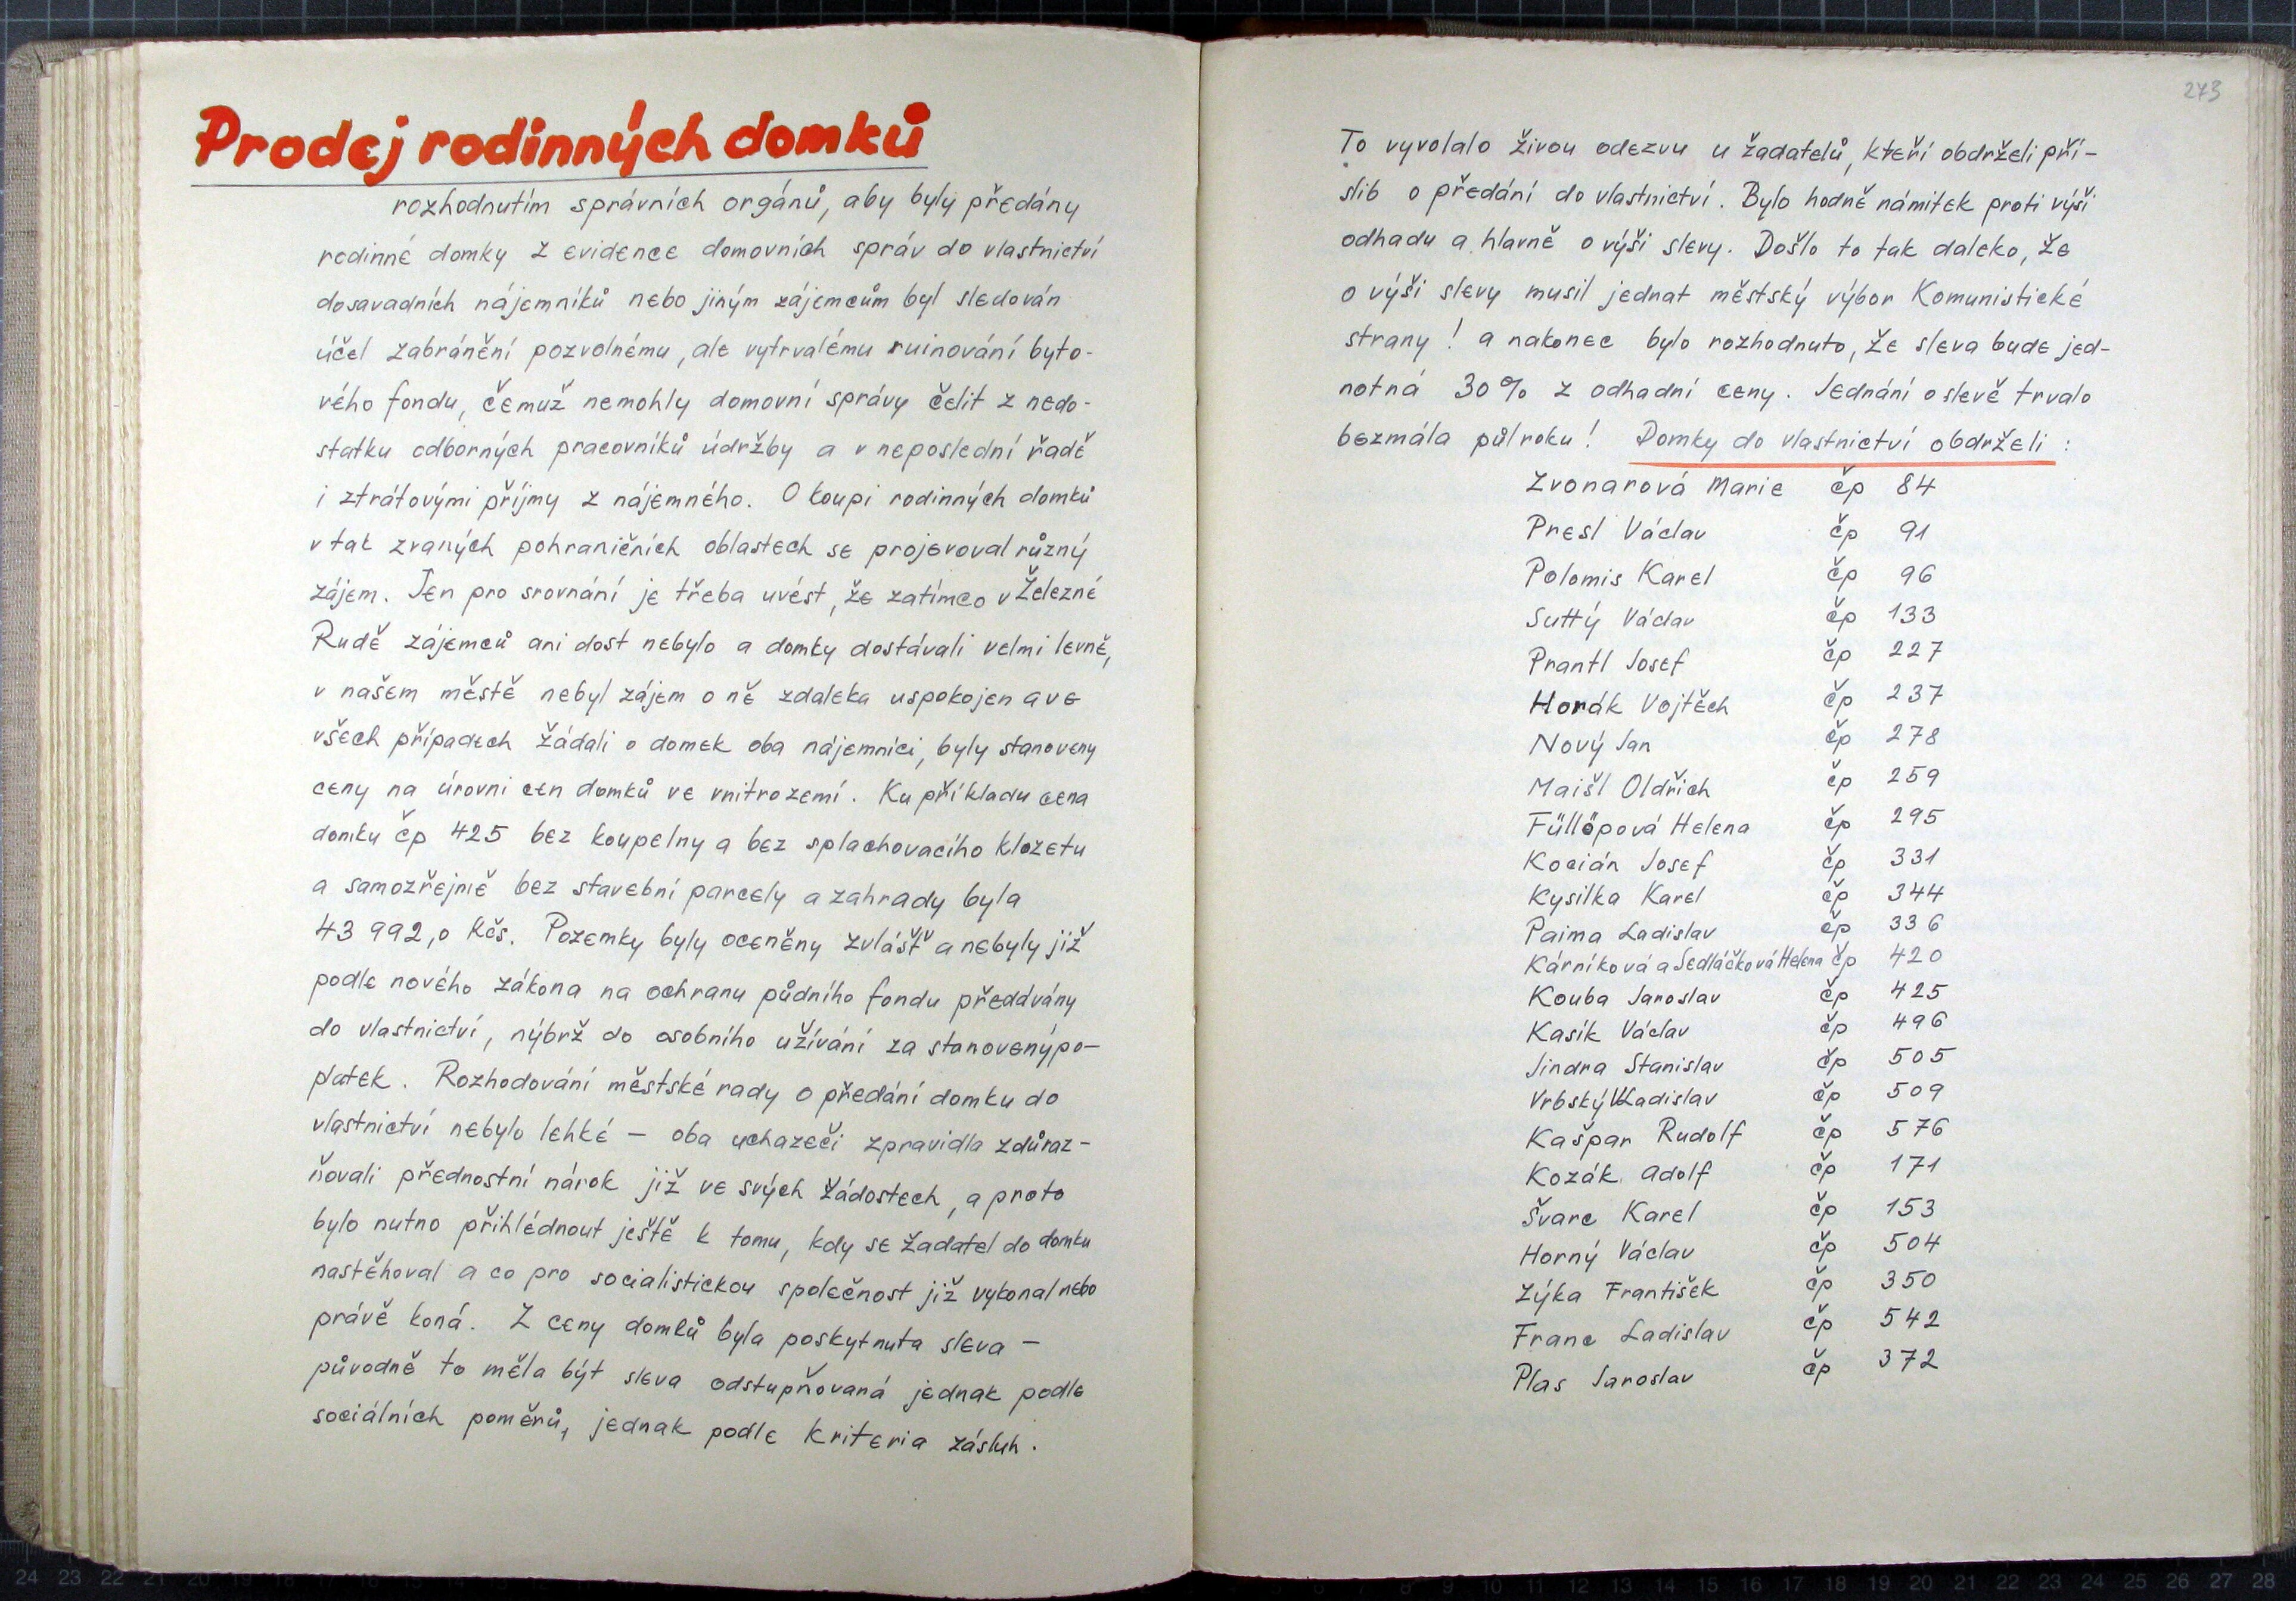 Prodej rodinných domků
rozhodnutím správních orgánů, aby byly předány
rodinné domky z evidence domovních správ do vlastnictví
dosavadních nájemníků nebo jiným zájemcům byl sledován
účel zabránění pozvolnému, ale vytrvalému ruinování byto-
vého fondu, čemuž nemohly domovní správy čelit z nedo-
statku odborných pracovníků údržby a v neposlední řadě
i ztrátovými příjmy z nájemného. O koupi rodinných domků
v tak zvaných pohraničních oblastech se projevoval různý
zájem. Jen pro srovnání je třeba uvést, že zatímco v Železné
Rudě zájemců ani dost nebylo a domky dostávali velmi levně,
v našem městě nebyl zájem o ně zdaleka uspokojen a ve
všech případech žádali o domek oba nájemníci, byly stanoveny
ceny na úrovni cen domků ve vnitrozemí. Ku příkladu cena
domku čp 425 bez koupelny a bez splachovacího klozetu
a samozřejmě bez stavební parcely a zahrady byla
43 992,0 Kčs. Pozemky byly oceněny zvlášť a nebyly již
podle nového zákona na ochranu půdního fondu předávány
do vlastnictví, nýbrž do osobního užívání za stanovený po-
platek. Rozhodování městské rady o předání domku do
vlastnictví nebylo lehké – oba uchazeči zpravidla zdůraz-
ňovali přednostní nárok již ve svých žádostech, a proto
bylo nutno přihlédnout ještě k tomu, kdy se žadatel do domku
nastěhoval a co pro socialistickou společnost již vykonal nebo
právě koná. Z ceny domků byla poskytnuta sleva –
původně to měla být sleva odstupňovaná jednak podle
sociálních poměrů, jednak podle kriteria zásluh.
273
To vyvolalo živou odezvu u žadatelů, kteří obdrželi pří-
slib o předání do vlastnictví. Bylo hodně námitek proti výši
odhadu a hlavně o výši slevy. Došlo to tak daleko, že
o výši slevy musil jednat městský výbor Komunistické
strany! a nakonec bylo rozhodnuto, že sleva bude jed-
notná 30% z odhadní ceny. Jednání o slevě trvalo
bezmála půl roku! Domky do vlastnictví obdrželi:
Zvonarová Marie čp 84
Presl Václav čp 91
Polomis Karel čp 96
Suttý Václav čp 133
Prantl Josef čp 227
Horák Vojtěch čp 237
Nový Jan čp 278
Maišl Oldřich čp 259
Füllöpová Helena čp 295
Kocián Josef čp 331
Kysilka Karel čp 344
Paima Ladislav čp 336
Kárníková a Sedláčková Helena čp 420
Kouba Jaroslav čp 425
Kasík Václav čp 496
Jindra Stanislav čp 505
Vrbský Ladislav čp 509
Kašpar Rudolf čp 576
Kozák Adolf čp 171
Švarc Karel čp 153
Horný Václav čp 504
Zýka František čp 350
Franc Ladislav čp 542
Plas Jaroslav čp 372
24 23 22 21 20 19 18
8 9 10 11 12 13 14 15 16 17 18 19 20 21 22 23 24 25 26 27 28